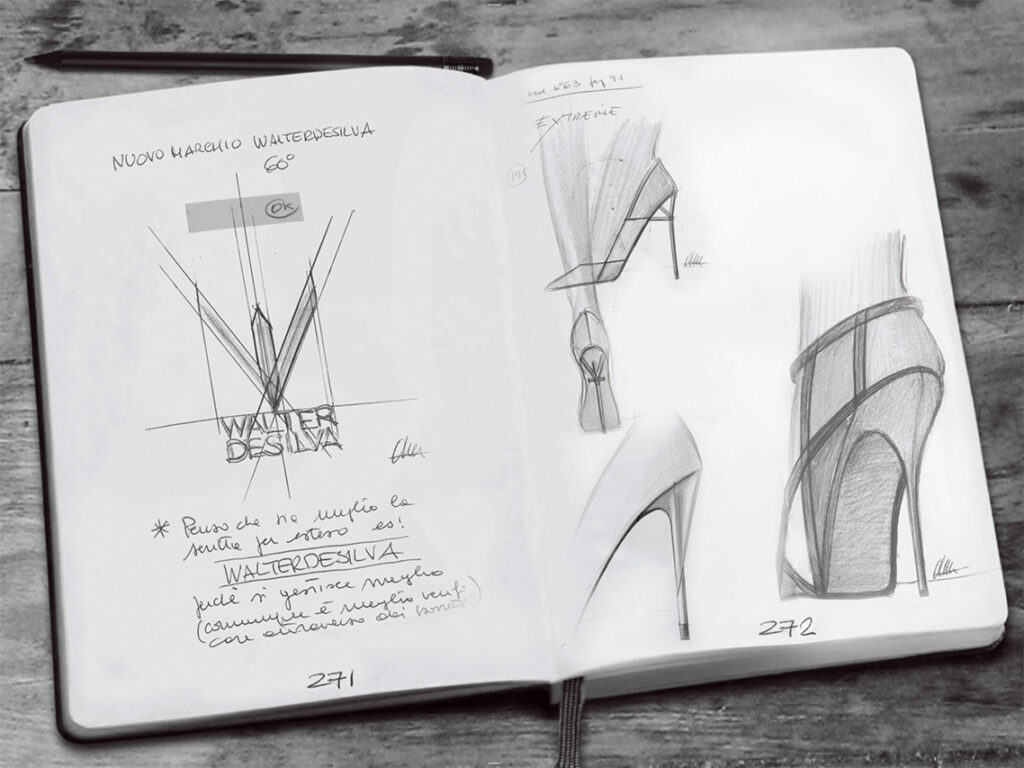 NUOVO MARCHIO WALTERDESILVA
60°
OK
WALTER
DESILVA
* Penso che sia meglio la
scritta per esteso es!
WALTERDESILVA
perchè si gestisce meglio
(comunque è meglio verifi
care attraverso dei
271
n°63
EXTREME
191
272